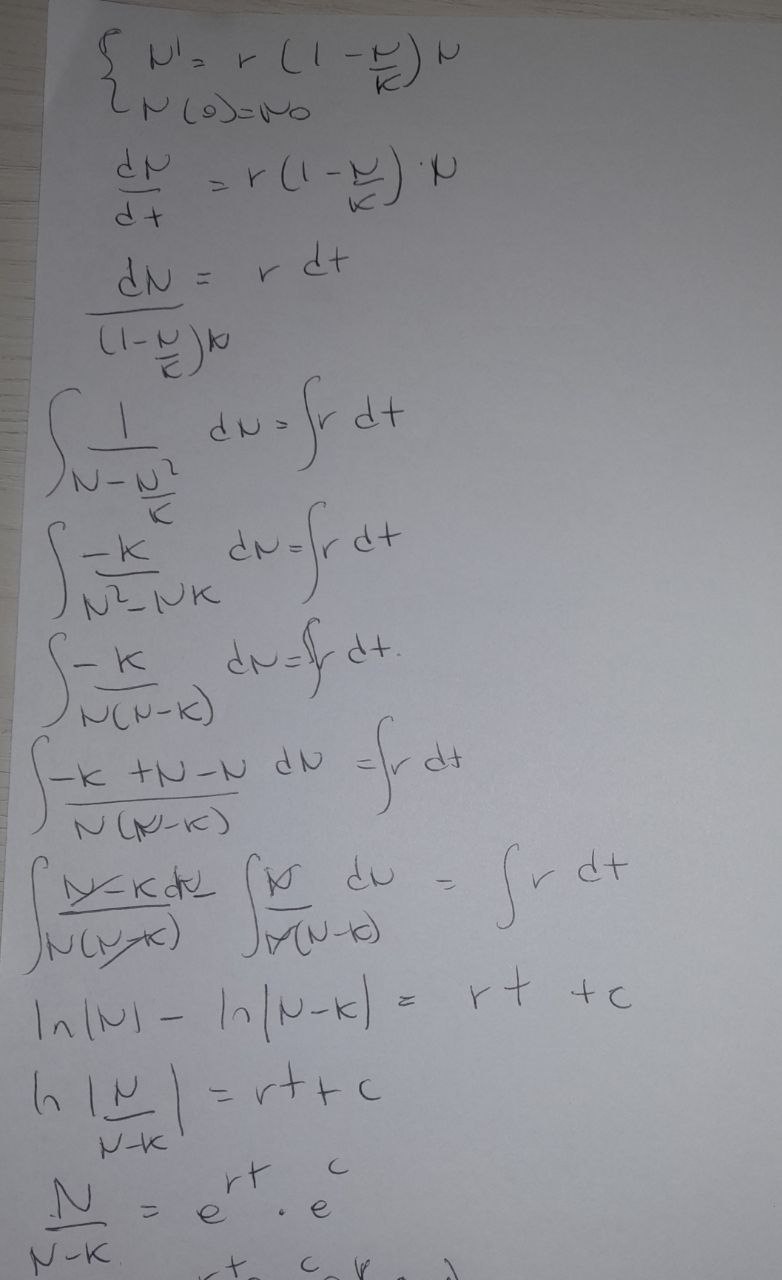 { N' = r (1 - N/K) N
N(0) = N0
dN/dt = r (1 - N/K) · N
dN/((1 - N/K) N) = r dt
∫ 1/(N - N²/K) dN = ∫ r dt
∫ -K/(N² - NK) dN = ∫ r dt
∫ -K/(N(N-K)) dN = ∫ r dt.
∫ (-K + N - N)/(N(N-K)) dN = ∫ r dt
∫ (N-K dN)/(N(N-K)) ∫ N/(N(N-K)) dN = ∫ r dt
ln|N| - ln|N-K| = rt + c
ln |N/(N-K)| = rt + c
N/(N-K) = e^rt · e^c